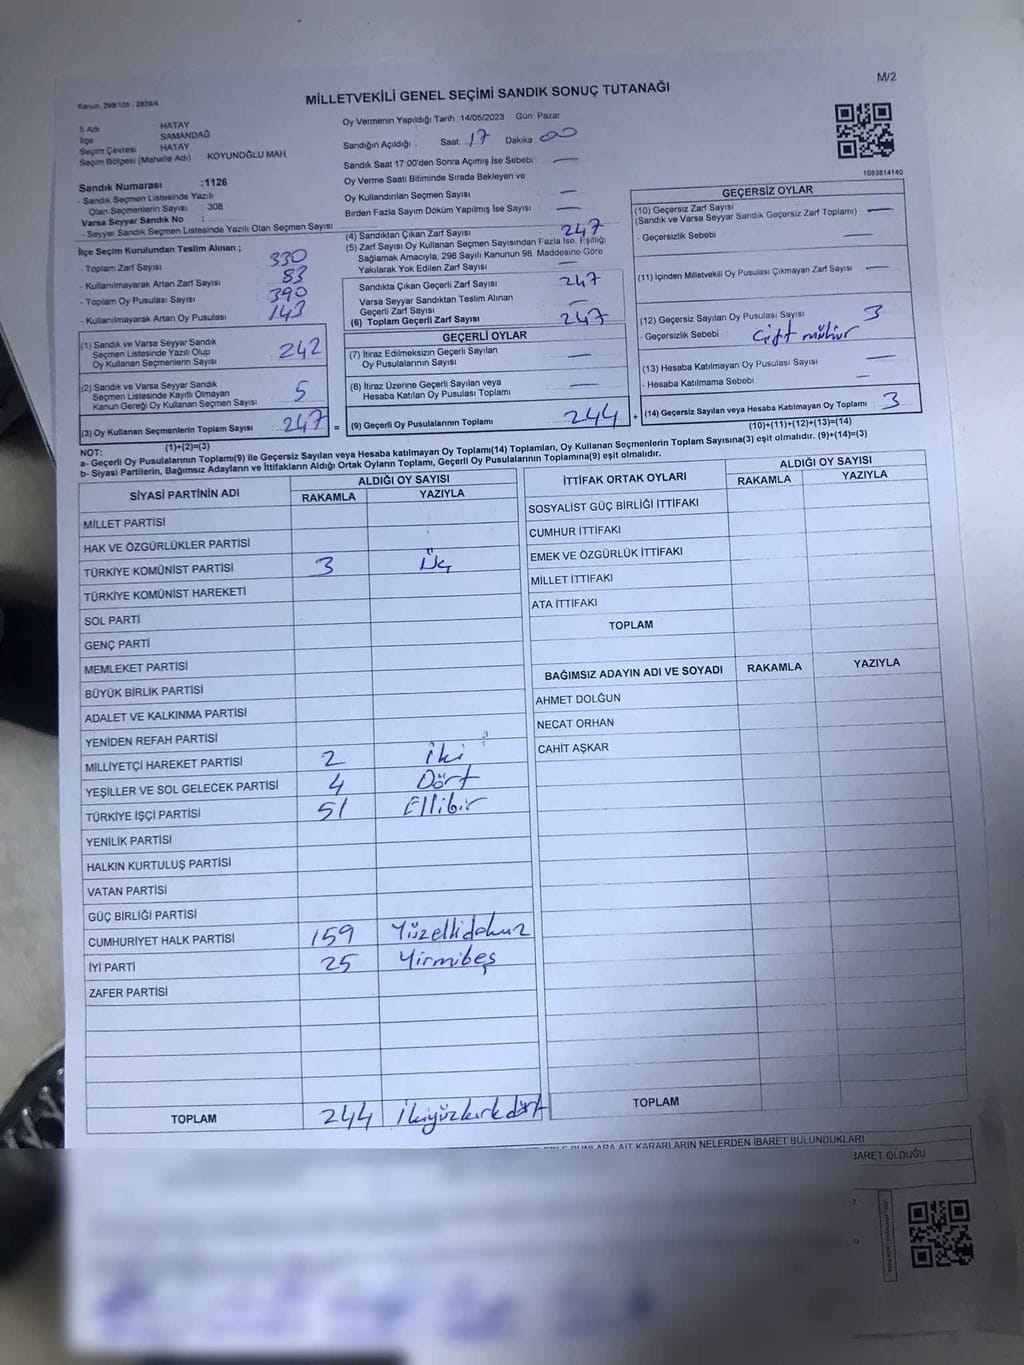 M/2
Kanun: 298/105 - 2839/4
MİLLETVEKİLİ GENEL SEÇİMİ SANDIK SONUÇ TUTANAĞI
İl Adı : HATAY
İlçe : SAMANDAĞ
Seçim Çevresi : HATAY
Seçim Bölgesi (Mahalle Adı) : KOYUNOĞLU MAH
Sandık Numarası :1126
- Sandık Seçmen Listesinde Yazılı
Olan Seçmenlerin Sayısı : 308
Varsa Seyyar Sandık No :
- Seyyar Sandık Seçmen Listesinde Yazılı Olan Seçmen Sayısı
İlçe Seçim Kurulundan Teslim Alınan ;
- Toplam Zarf Sayısı 330
- Kullanılmayarak Artan Zarf Sayısı 83
- Toplam Oy Pusulası Sayısı 390
- Kullanılmayarak Artan Oy Pusulası 143
(1) Sandık ve Varsa Seyyar Sandık
Seçmen Listesinde Yazılı Olup
Oy Kullanan Seçmenlerin Sayısı 242
(2) Sandık ve Varsa Seyyar Sandık
Seçmen Listesinde Kayıtlı Olmayan
Kanun Gereği Oy Kullanan Seçmen Sayısı 5
(3) Oy Kullanan Seçmenlerin Toplam Sayısı 247 =
(1)+(2)=(3)
Oy Vermenin Yapıldığı Tarih :14/05/2023 Gün: Pazar
Sandığın Açıldığı : Saat 17 Dakika 00
Sandık Saat 17:00'den Sonra Açılmış İse Sebebi : —
Oy Verme Saati Bitiminde Sırada Bekleyen ve
Oy Kullandırılan Seçmen Sayısı —
Birden Fazla Sayım Döküm Yapılmış İse Sayısı —
(4) Sandıktan Çıkan Zarf Sayısı 247
(5) Zarf Sayısı Oy Kullanan Seçmen Sayısından Fazla İse, Eşitliği
Sağlamak Amacıyla, 298 Sayılı Kanunun 98. Maddesine Göre
Yakılarak Yok Edilen Zarf Sayısı —
Sandıkta Çıkan Geçerli Zarf Sayısı 247
Varsa Seyyar Sandıktan Teslim Alınan
Geçerli Zarf Sayısı —
(6) Toplam Geçerli Zarf Sayısı 247
GEÇERLİ OYLAR
(7) İtiraz Edilmeksizin Geçerli Sayılan
Oy Pusulalarının Sayısı —
(8) İtiraz Üzerine Geçerli Sayılan veya
Hesaba Katılan Oy Pusulası Toplamı —
(9) Geçerli Oy Pusulalarının Toplamı 244 +
1083814140
GEÇERSİZ OYLAR
(10) Geçersiz Zarf Sayısı —
(Sandık ve Varsa Seyyar Sandık Geçersiz Zarf Toplamı)
- Geçersizlik Sebebi —
(11) İçinden Milletvekili Oy Pusulası Çıkmayan Zarf Sayısı —
(12) Geçersiz Sayılan Oy Pusulası Sayısı 3
- Geçersizlik Sebebi : Çift mühür
(13) Hesaba Katılmayan Oy Pusulası Sayısı —
- Hesaba Katılmama Sebebi —
(14) Geçersiz Sayılan veya Hesaba Katılmayan Oy Toplamı 3
(10)+(11)+(12)+(13)=(14)
NOT:
a- Geçerli Oy Pusulalarının Toplamı(9) ile Geçersiz Sayılan veya Hesaba katılmayan Oy Toplamı(14) Toplamları, Oy Kullanan Seçmenlerin Toplam Sayısına(3) eşit olmalıdır. (9)+(14)=(3)
b- Siyasi Partilerin, Bağımsız Adayların ve İttifakların Aldığı Ortak Oyların Toplamı, Geçerli Oy Pusulalarının Toplamına(9) eşit olmalıdır.
SİYASİ PARTİNİN ADI ALDIĞI OY SAYISI
RAKAMLA YAZIYLA
MİLLET PARTİSİ
HAK VE ÖZGÜRLÜKLER PARTİSİ
TÜRKİYE KOMÜNİST PARTİSİ 3 Üç
TÜRKİYE KOMÜNİST HAREKETİ
SOL PARTİ
GENÇ PARTİ
MEMLEKET PARTİSİ
BÜYÜK BİRLİK PARTİSİ
ADALET VE KALKINMA PARTİSİ
YENİDEN REFAH PARTİSİ
MİLLİYETÇİ HAREKET PARTİSİ 2 İki
YEŞİLLER VE SOL GELECEK PARTİSİ 4 Dört
TÜRKİYE İŞÇİ PARTİSİ 51 Ellibir
YENİLİK PARTİSİ
HALKIN KURTULUŞ PARTİSİ
VATAN PARTİSİ
GÜÇ BİRLİĞİ PARTİSİ
CUMHURİYET HALK PARTİSİ 159 Yüzellidokuz
İYİ PARTİ 25 Yirmibeş
ZAFER PARTİSİ
TOPLAM 244 İkiyüzkırkdört
İTTİFAK ORTAK OYLARI ALDIĞI OY SAYISI
RAKAMLA YAZIYLA
SOSYALİST GÜÇ BİRLİĞİ İTTİFAKI
CUMHUR İTTİFAKI
EMEK VE ÖZGÜRLÜK İTTİFAKI
MİLLET İTTİFAKI
ATA İTTİFAKI
TOPLAM
BAĞIMSIZ ADAYIN ADI VE SOYADI RAKAMLA YAZIYLA
AHMET DOLĞUN
NECAT ORHAN
CAHİT AŞKAR
TOPLAM
AİT KARARLARIN NELERDEN İBARET BULUNDUKLARI
İBARET OLDUĞU